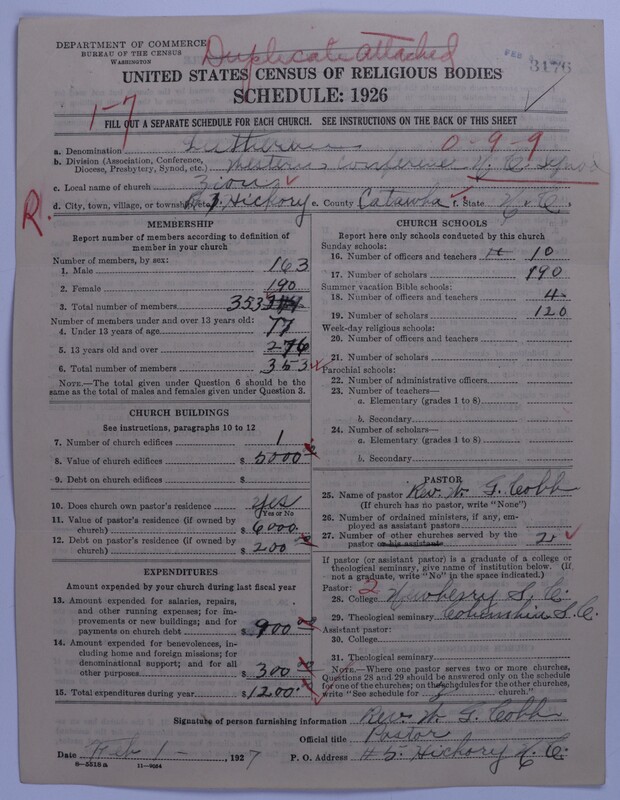 Duplicate attached
DEPARTMENT OF COMMERCE
BUREAU OF THE CENSUS
WASHINGTON
FEB
3176
UNITED STATES CENSUS OF RELIGIOUS BODIES
SCHEDULE: 1926
1-7
FILL OUT A SEPARATE SCHEDULE FOR EACH CHURCH. SEE INSTRUCTIONS ON THE BACK OF THIS SHEET
a. Denomination Lutheran 0-9-9
b. Division (Association, Conference, Diocese, Presbytery, Synod, etc.) Western Conference N. C. Synod
c. Local name of church Zion
R.
d. City, town, village, or township, etc. Hickory e. County Catawba f. State N. C.
MEMBERSHIP
Report number of members according to definition of member in your church
Number of members, by sex:
1. Male 163
2. Female 190
3. Total number of members 353
Number of members under and over 13 years old:
4. Under 13 years of age 77
5. 13 years old and over 276
6. Total number of members 353
NOTE.—The total given under Question 6 should be the same as the total of males and females given under Question 3.
CHURCH BUILDINGS
See instructions, paragraphs 10 to 12
7. Number of church edifices 1
8. Value of church edifices $ 5000
9. Debt on church edifices $
10. Does church own pastor's residence yes
Yes or No
11. Value of pastor's residence (if owned by church) $ 6000.
12. Debt on pastor's residence (if owned by church) $ 200
EXPENDITURES
Amount expended by your church during last fiscal year
13. Amount expended for salaries, repairs, and other running expenses; for improvements or new buildings; and for payments on church debt $ 900
14. Amount expended for benevolences, including home and foreign missions; for denominational support; and for all other purposes $ 300
15. Total expenditures during year $ 1200.
CHURCH SCHOOLS
Report here only schools conducted by this church
Sunday schools:
16. Number of officers and teachers 10
17. Number of scholars 190
Summer vacation Bible schools:
18. Number of officers and teachers 4
19. Number of scholars 120
Week-day religious schools:
20. Number of officers and teachers
21. Number of scholars
Parochial schools:
22. Number of administrative officers
23. Number of teachers—
a. Elementary (grades 1 to 8)
b. Secondary
24. Number of scholars—
a. Elementary (grades 1 to 8)
b. Secondary
PASTOR
25. Name of pastor Rev. W. G. Cobb
(If church has no pastor, write "None")
26. Number of ordained ministers, if any, employed as assistant pastors
27. Number of other churches served by the pastor or his assistant 2
If pastor (or assistant pastor) is a graduate of a college or theological seminary, give name of institution below. (If not a graduate, write "No" in the space indicated.)
Pastor: 2
28. College Newberry S. C.
29. Theological seminary Columbia S. C.
Assistant pastor:
30. College
31. Theological seminary
NOTE.—Where one pastor serves two or more churches, Questions 28 and 29 should be answered only on the schedule for one of the churches; on the schedules for the other churches, write "See schedule for church."
Signature of person furnishing information Rev. W. G. Cobb
Official title Pastor
Date Feb 1 - , 1927 P. O. Address #5. Hickory N. C.
8-5518a 11-9034